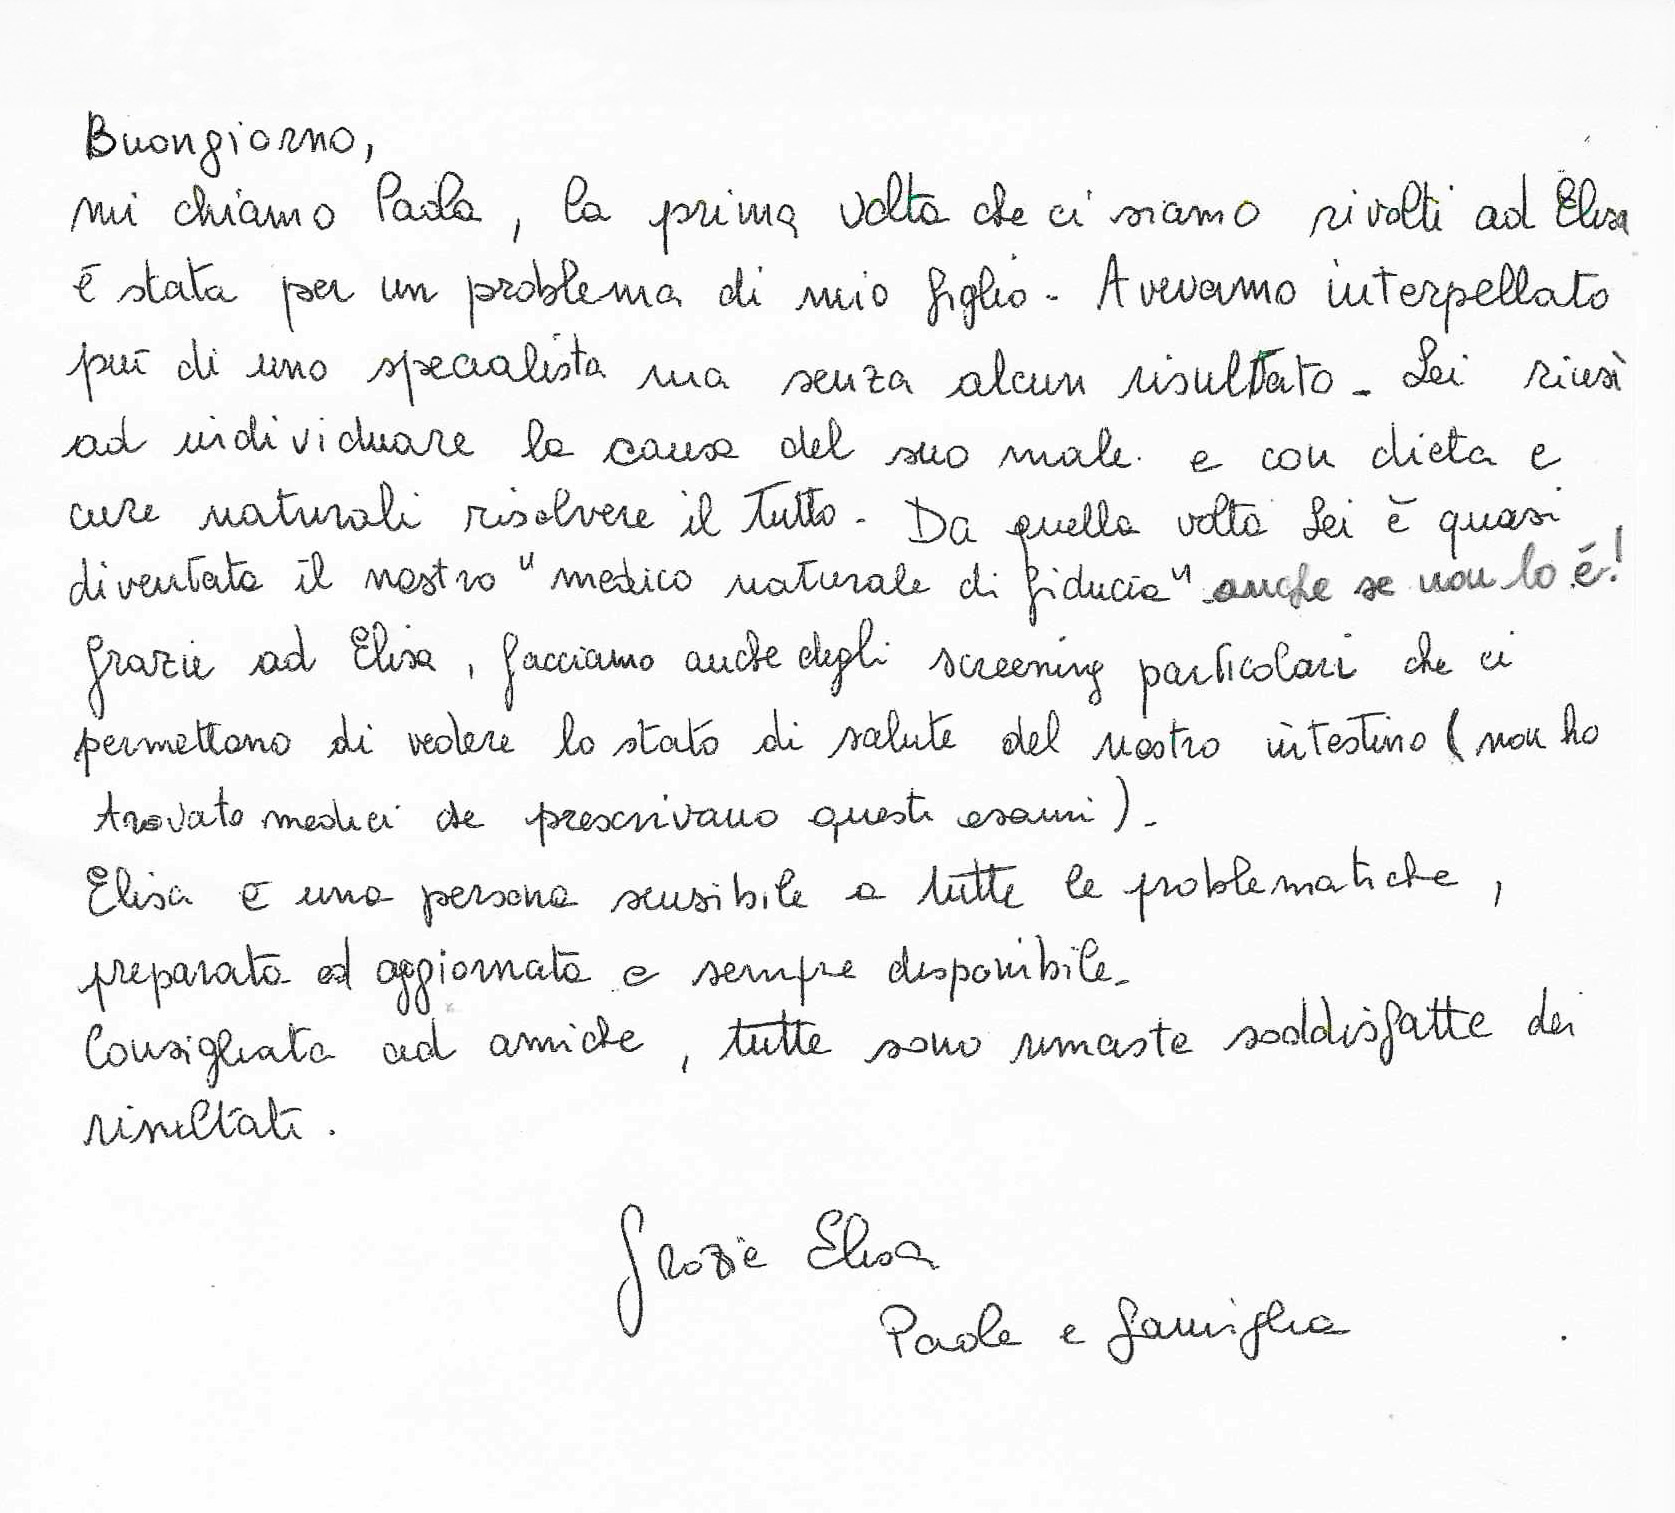 Buongiorno,
mi chiamo Paola, la prima volta che ci siamo rivolti ad Elisa
è stata per un problema di mio figlio - Avevamo interpellato
più di uno specialista ma senza alcun risultato - Lei riuscì
ad individuare la causa del suo male e con dieta e
cure naturali risolvere il tutto - Da quella volta Lei è quasi
diventata il nostro "medico naturale di fiducia" anche se non lo è!
Grazie ad Elisa, facciamo anche degli screening particolari che ci
permettono di vedere lo stato di salute del nostro intestino (non ho
trovato medici che prescrivano questi esami) -
Elisa è una persona sensibile a tutte le problematiche,
preparata ed aggiornata e sempre disponibile -
Consigliata ad amiche, tutte sono rimaste soddisfatte dei
risultati.
Grazie Elisa
Paola e famiglia